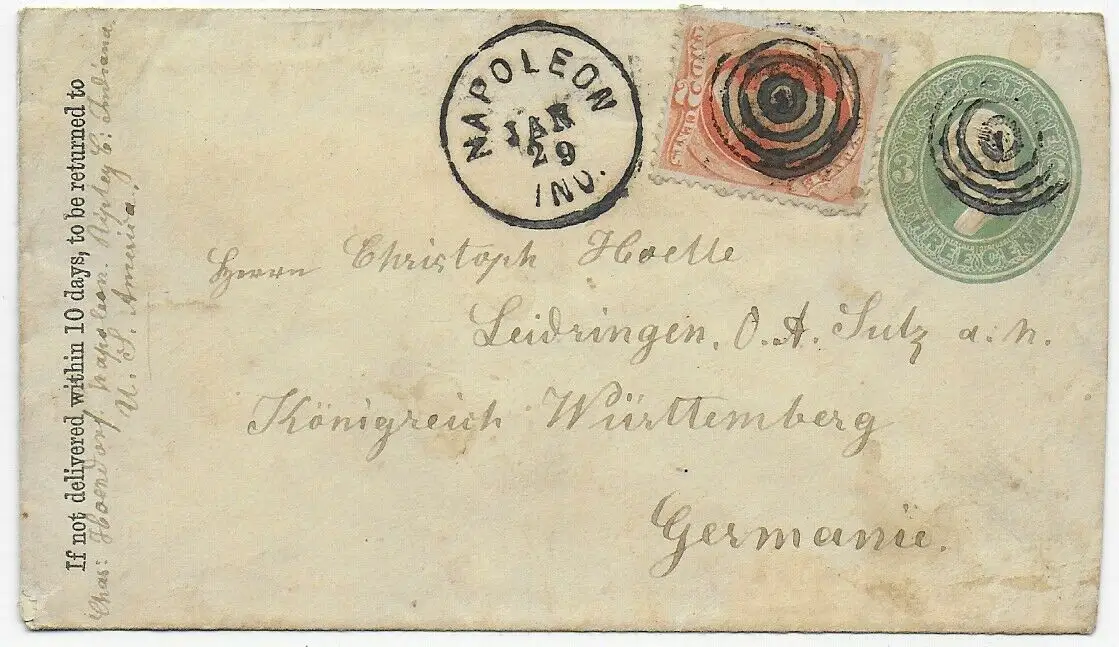 If not delivered within 10 days, to be returned to
Chas: Hoendorf. Napoleon. Ripley C: Indiana
U. S. America.
NAPOLEON
JAN
29
IND.
Herrn Christoph Hoelle
Leidringen, O. A. Sulz a. N.
Königreich Württemberg
Germanie.
U.S. POSTAGE
3 3
THREE CENTS